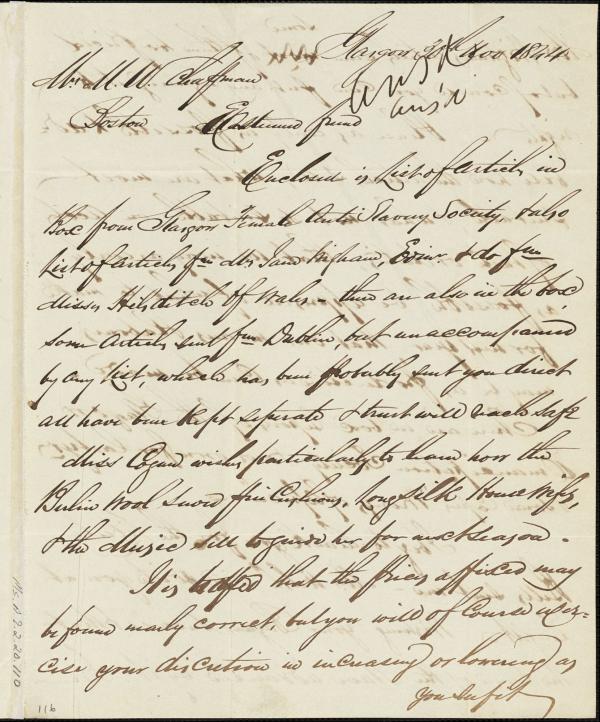 Glasgow 20th Nov 1844
Mrs M. W. Chapman
Boston Esteemed friend
Enclosed is List of Articles in
Box from Glasgow Female Anti Slavery Society, & also
List of Articles fm Mrs Jane Wigham, Edinr. & do fm
Misses Hilditch of Wales - there are also in the box
some Articles sent fm Dublin, but unaccompanied
by any List, which has been probably sent you direct
all have been kept seperate & trust will reach safe
Miss Cogan wishes particularly to learn how the
Berlin Wool Pin Cushions, Long Silk House Wifes,
& the Music sell to guide her for next season.
It is hoped that the prices affixed may
be found nearly correct, but you will of Course exer=
cise your discretion in increasing or lowering as
you see fit
Ms. A.9.2.20.110
116